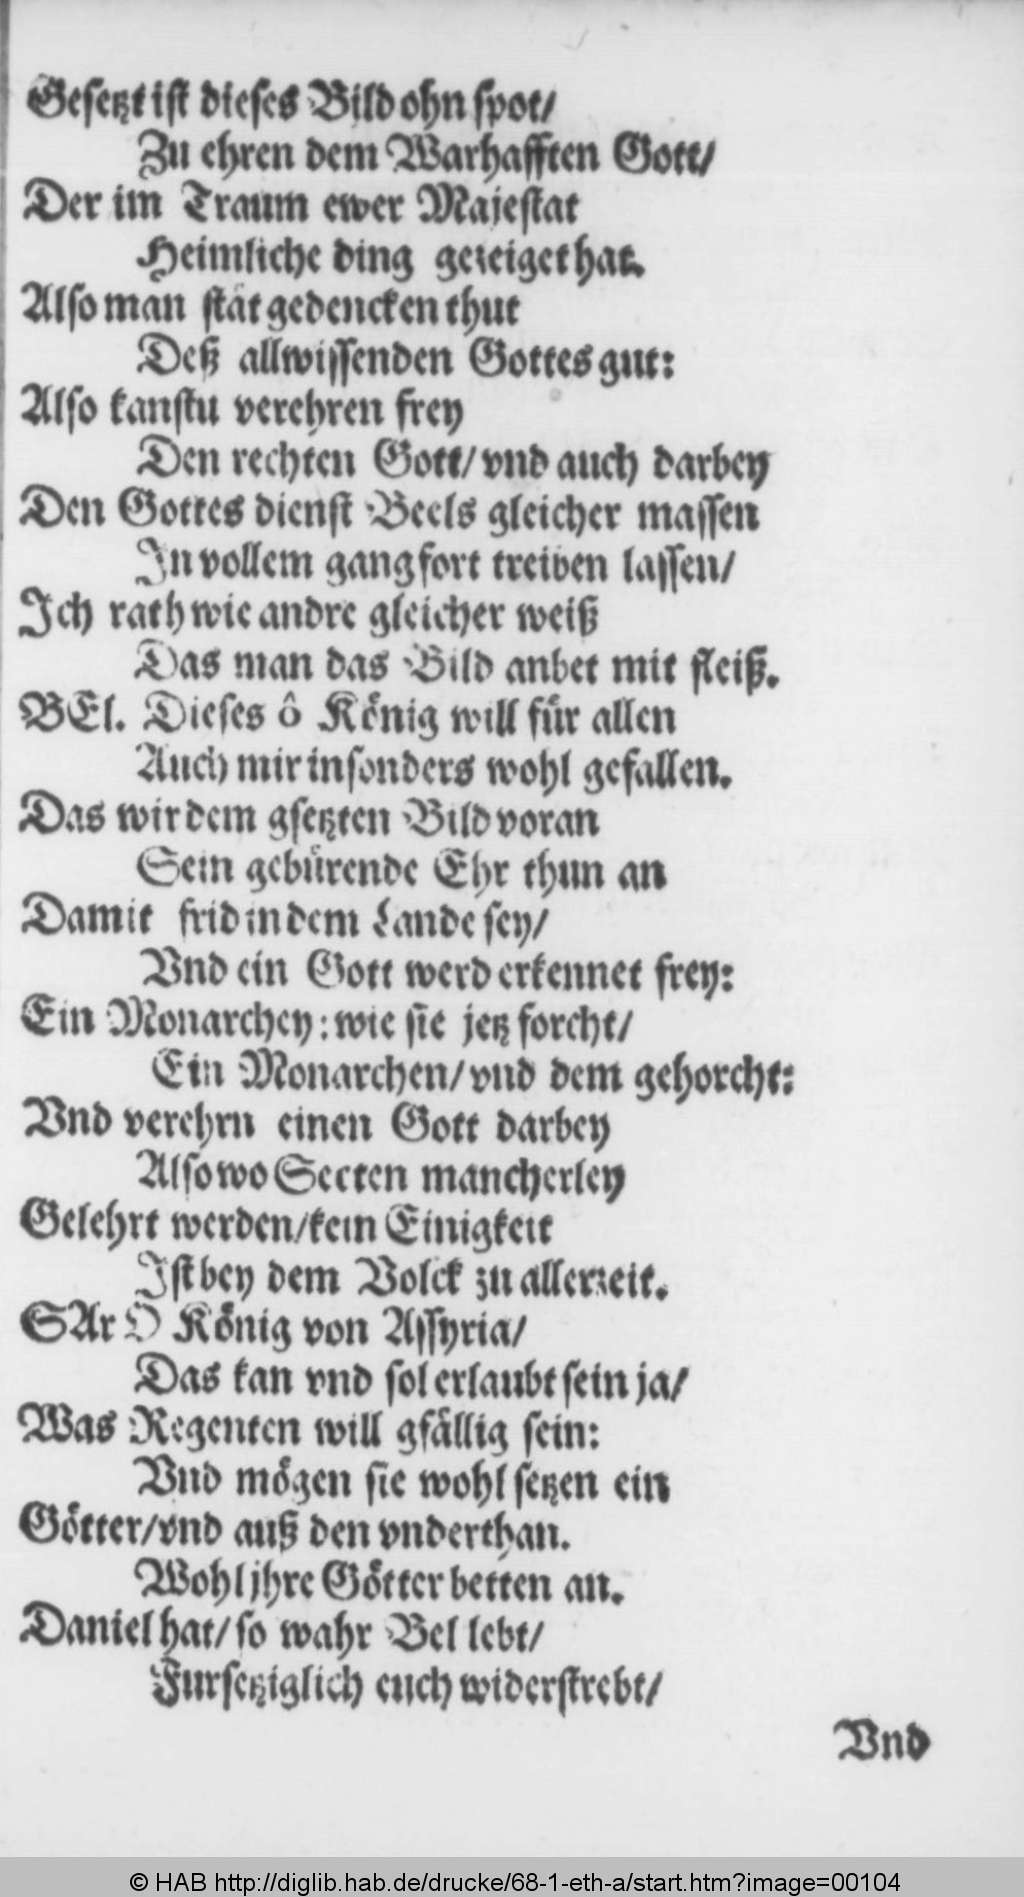 Gesetzt ist dieses Bild ohn spot/
Zu ehren dem Warhafften Gott/
Der im Traum ewer Majestat
Heimliche ding gezeiget hat.
Also man stät gedencken thut
Deß allwissenden Gottes gut:
Also kanstu verehren frey
Den rechten Gott/ vnd auch darbey
Den Gottes dienst Beels gleicher massen
In vollem gang fort treiben lassen/
Ich rath wie andre gleicher weiß
Das man das Bild anbet mit fleiß.
BEl. Dieses ô König will für allen
Auch mir insonders wohl gefallen.
Das wir dem gsetzten Bild voran
Sein gebürende Ehr thun an
Damit frid in dem Lande sey/
Vnd ein Gott werd erkennet frey:
Ein Monarchey: wie sie jetz forcht/
Ein Monarchen/ vnd dem gehorcht:
Vnd verehrn einen Gott darbey
Also wo Secten mancherley
Gelehrt werden/ kein Einigkeit
Ist bey dem Volck zu allerzeit.
SAr O König von Assyria/
Das kan vnd sol erlaubt sein ja/
Was Regenten will gfällig sein:
Vnd mögen sie wohl setzen ein
Götter/ vnd auß den vnderthan.
Wohl jhre Götter betten an.
Daniel hat/ so wahr Bel lebt/
Fursetziglich euch widerstrebt/
Vnd
© HAB http://diglib.hab.de/drucke/68-1-eth-a/start.htm?image=00104